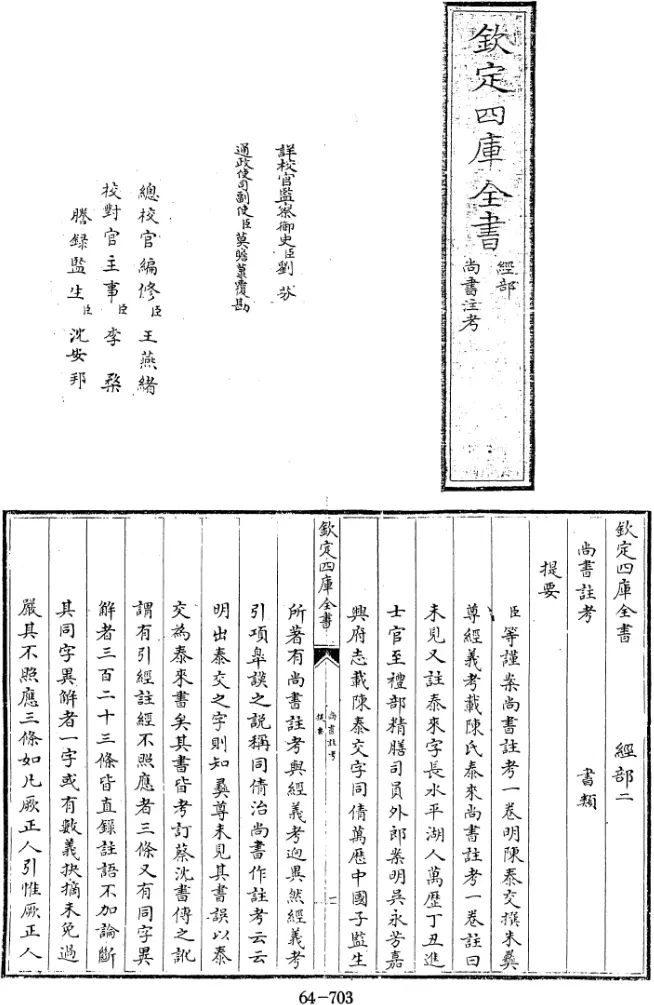 欽定四庫全書
經部
尚書注考
詳校官監察御史臣劉芬
通政使司副使臣莫瞻菉覆勘
總校官編修臣王燕緒
校對官主事臣李
謄錄監生臣沈安邦
欽定四庫全書 經部二
尚書註考 書類
提要
臣等謹案尚書註考一卷明陳泰交撰朱彝
尊經義考載陳氏泰來尚書註考一卷註曰
未見又註泰來字長水平湖人萬歷丁丑進
士官至禮部精膳司員外郎案明吳永芳嘉
興府志載陳泰交字同倩萬歷中國子監生
欽定四庫全書
尚書註考
提要
一
所著有尚書註考與經義考迥異然經義考
引項臯謨之說稱同倩治尚書作註考云云
明出泰交之字則知彝尊未見其書誤以泰
交為泰來書矣其書皆考訂蔡沈書傳之訛
謂有引經註經不照應者三條又有同字異
解者三百二十三條皆直錄註語不加論斷
其同字異解者一字或有數義抉摘未免過
嚴其不照應三條如凡厥正人引惟厥正人
64-703